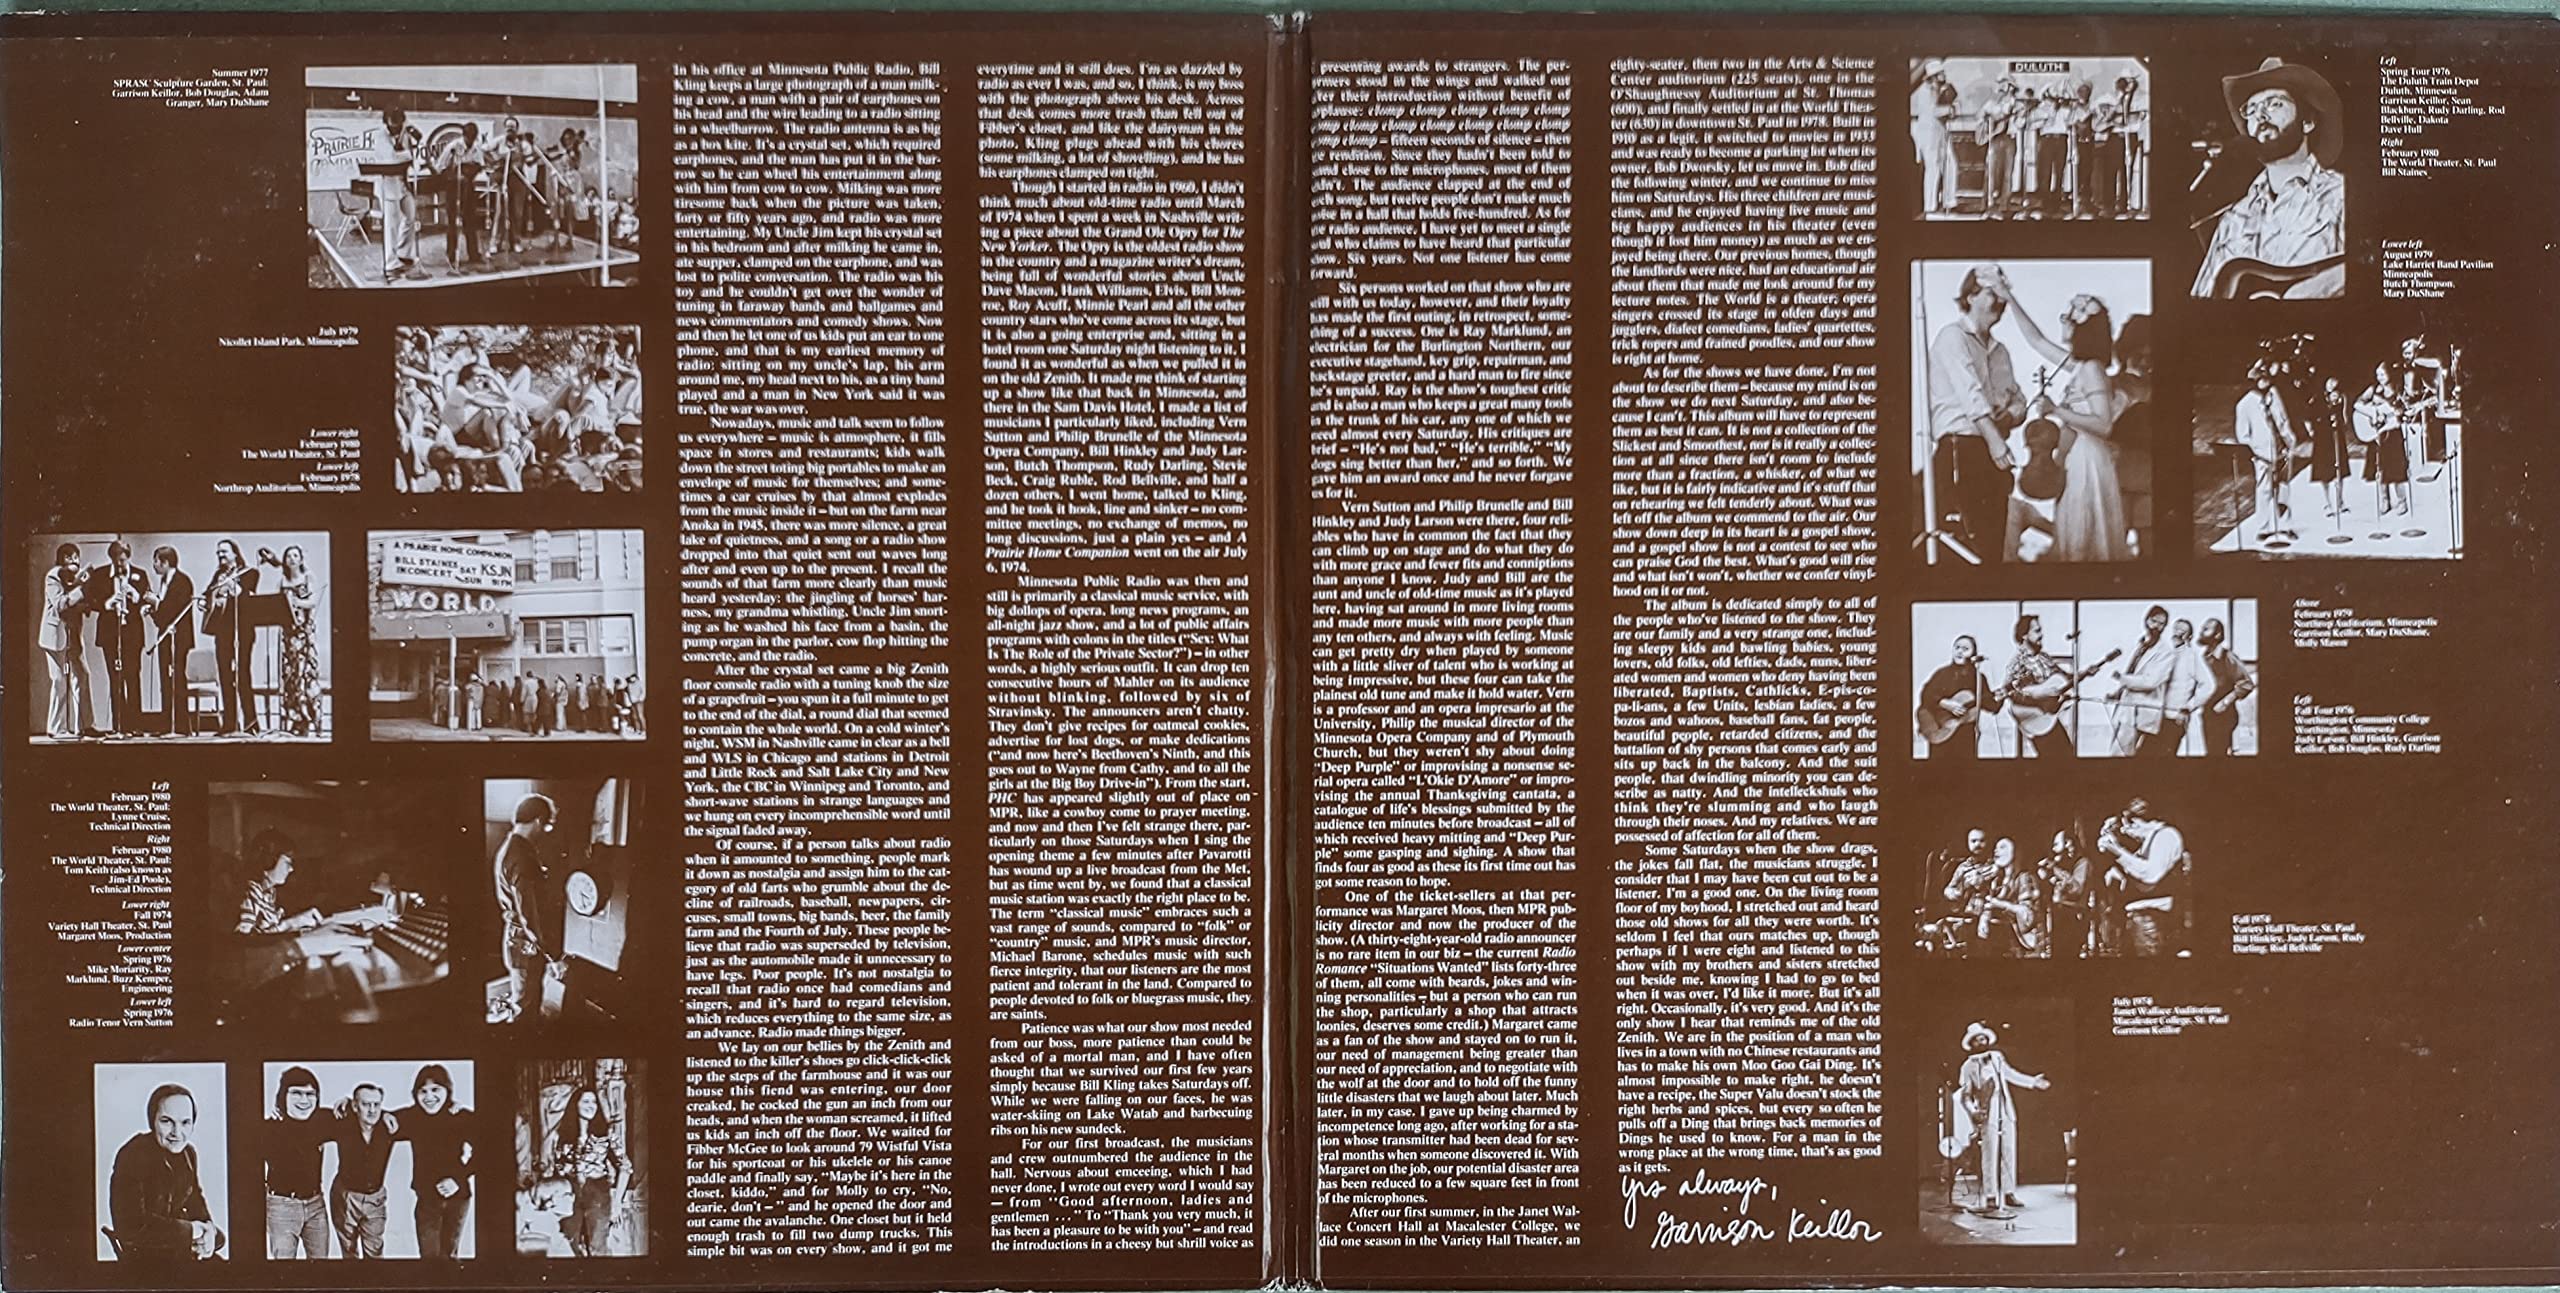 Summer 1977
SPRASC Sculpture Garden, St. Paul:
Garrison Keillor, Bob Douglas, Adam
Granger, Mary DuShane
PRAIRIE H
July 1979
Nicollet Island Park, Minneapolis
Lower right
February 1980
The World Theater, St. Paul
Lower left
February 1978
Northrop Auditorium, Minneapolis
A PRAIRIE HOME COMPANION
BILL STAINES SAT KSJN
IN CONCERT SUN 9PM
WORLD
Left
February 1980
The World Theater, St. Paul:
Lynne Cruise,
Technical Direction
Right
February 1980
The World Theater, St. Paul:
Tom Keith (also known as
Jim-Ed Poole),
Technical Direction
Lower right
Fall 1974
Variety Hall Theater, St. Paul
Margaret Moos, Production
Lower center
Spring 1976
Mike Moriarity, Ray
Marklund, Buzz Kemper,
Engineering
Lower left
Spring 1976
Radio Tenor Vern Sutton
In his office at Minnesota Public Radio, Bill
Kling keeps a large photograph of a man milk-
ing a cow, a man with a pair of earphones on
his head and the wire leading to a radio sitting
in a wheelbarrow. The radio antenna is as big
as a box kite. It's a crystal set, which required
earphones, and the man has put it in the bar-
row so he can wheel his entertainment along
with him from cow to cow. Milking was more
tiresome back when the picture was taken,
forty or fifty years ago, and radio was more
entertaining. My Uncle Jim kept his crystal set
in his bedroom and after milking he came in,
ate supper, clamped on the earphone, and was
lost to polite conversation. The radio was his
toy and he couldn't get over the wonder of
tuning in faraway bands and ballgames and
news commentators and comedy shows. Now
and then he let one of us kids put an ear to one
phone, and that is my earliest memory of
radio: sitting on my uncle's lap, his arm
around me, my head next to his, as a tiny band
played and a man in New York said it was
true, the war was over.
Nowadays, music and talk seem to follow
us everywhere – music is atmosphere, it fills
space in stores and restaurants; kids walk
down the street toting big portables to make an
envelope of music for themselves; and some-
times a car cruises by that almost explodes
from the music inside it – but on the farm near
Anoka in 1945, there was more silence, a great
lake of quietness, and a song or a radio show
dropped into that quiet sent out waves long
after and even up to the present. I recall the
sounds of that farm more clearly than music
heard yesterday: the jingling of horses' har-
ness, my grandma whistling, Uncle Jim snort-
ing as he washed his face from a basin, the
pump organ in the parlor, cow flop hitting the
concrete, and the radio.
After the crystal set came a big Zenith
floor console radio with a tuning knob the size
of a grapefruit – you spun it a full minute to get
to the end of the dial, a round dial that seemed
to contain the whole world. On a cold winter's
night, WSM in Nashville came in clear as a bell
and WLS in Chicago and stations in Detroit
and Little Rock and Salt Lake City and New
York, the CBC in Winnipeg and Toronto, and
short-wave stations in strange languages and
we hung on every incomprehensible word until
the signal faded away.
Of course, if a person talks about radio
when it amounted to something, people mark
it down as nostalgia and assign him to the cat-
egory of old farts who grumble about the de-
cline of railroads, baseball, newpapers, cir-
cuses, small towns, big bands, beer, the family
farm and the Fourth of July. These people be-
lieve that radio was superseded by television,
just as the automobile made it unnecessary to
have legs. Poor people. It's not nostalgia to
recall that radio once had comedians and
singers, and it's hard to regard television,
which reduces everything to the same size, as
an advance. Radio made things bigger.
We lay on our bellies by the Zenith and
listened to the killer's shoes go click-click-click
up the steps of the farmhouse and it was our
house this fiend was entering, our door
creaked, he cocked the gun an inch from our
heads, and when the woman screamed, it lifted
us kids an inch off the floor. We waited for
Fibber McGee to look around 79 Wistful Vista
for his sportcoat or his ukelele or his canoe
paddle and finally say, "Maybe it's here in the
closet, kiddo," and for Molly to cry, "No,
dearie, don't – " and he opened the door and
out came the avalanche. One closet but it held
enough trash to fill two dump trucks. This
simple bit was on every show, and it got me
everytime and it still does. I'm as dazzled by
radio as ever I was, and so, I think, is my boss
with the photograph above his desk. Across
that desk comes more trash than fell out of
Fibber's closet, and like the dairyman in the
photo, Kling plugs ahead with his chores
(some milking, a lot of shovelling), and he has
his earphones clamped on tight.
Though I started in radio in 1960, I didn't
think much about old-time radio until March
of 1974 when I spent a week in Nashville writ-
ing a piece about the Grand Ole Opry for The
New Yorker. The Opry is the oldest radio show
in the country and a magazine writer's dream,
being full of wonderful stories about Uncle
Dave Macon, Hank Williams, Elvis, Bill Mon-
roe, Roy Acuff, Minnie Pearl and all the other
country stars who've come across its stage, but
it is also a going enterprise and, sitting in a
hotel room one Saturday night listening to it, I
found it as wonderful as when we pulled it in
on the old Zenith. It made me think of starting
up a show like that back in Minnesota, and
there in the Sam Davis Hotel, I made a list of
musicians I particularly liked, including Vern
Sutton and Philip Brunelle of the Minnesota
Opera Company, Bill Hinkley and Judy Lar-
son, Butch Thompson, Rudy Darling, Stevie
Beck, Craig Ruble, Rod Bellville, and half a
dozen others. I went home, talked to Kling,
and he took it hook, line and sinker – no com-
mittee meetings, no exchange of memos, no
long discussions, just a plain yes – and A
Prairie Home Companion went on the air July
6, 1974.
Minnesota Public Radio was then and
still is primarily a classical music service, with
big dollops of opera, long news programs, an
all-night jazz show, and a lot of public affairs
programs with colons in the titles ("Sex: What
Is The Role of the Private Sector?") – in other
words, a highly serious outfit. It can drop ten
consecutive hours of Mahler on its audience
without blinking, followed by six of
Stravinsky. The announcers aren't chatty.
They don't give recipes for oatmeal cookies,
advertise for lost dogs, or make dedications
("and now here's Beethoven's Ninth, and this
goes out to Wayne from Cathy, and to all the
girls at the Big Boy Drive-in"). From the start,
PHC has appeared slightly out of place on
MPR, like a cowboy come to prayer meeting,
and now and then I've felt strange there, par-
ticularly on those Saturdays when I sing the
opening theme a few minutes after Pavarotti
has wound up a live broadcast from the Met,
but as time went by, we found that a classical
music station was exactly the right place to be.
The term "classical music" embraces such a
vast range of sounds, compared to "folk" or
"country" music, and MPR's music director,
Michael Barone, schedules music with such
fierce integrity, that our listeners are the most
patient and tolerant in the land. Compared to
people devoted to folk or bluegrass music, they
are saints.
Patience was what our show most needed
from our boss, more patience than could be
asked of a mortal man, and I have often
thought that we survived our first few years
simply because Bill Kling takes Saturdays off.
While we were falling on our faces, he was
water-skiing on Lake Watab and barbecuing
ribs on his new sundeck.
For our first broadcast, the musicians
and crew outnumbered the audience in the
hall. Nervous about emceeing, which I had
never done, I wrote out every word I would say
— from "Good afternoon, ladies and
gentlemen ... " To "Thank you very much, it
has been a pleasure to be with you" – and read
the introductions in a cheesy but shrill voice as
presenting awards to strangers. The per-
ormers stood in the wings and walked out
ter their introduction without benefit of
pplause: clomp clomp clomp clomp clomp
omp clomp clomp clomp clomp clomp
omp clomp – fifteen seconds of silence – then
e rendition. Since they hadn't been told to
and close to the microphones, most of them
dn't. The audience clapped at the end of
ch song, but twelve people don't make much
oise in a hall that holds five-hundred. As for
e radio audience, I have yet to meet a single
ul who claims to have heard that particular
how. Six years. Not one listener has come
orward.
Six persons worked on that show who are
till with us today, however, and their loyalty
as made the first outing, in retrospect, some-
hing of a success. One is Ray Marklund, an
electrician for the Burlington Northern, our
executive stagehand, key grip, repairman, and
backstage greeter, and a hard man to fire since
he's unpaid. Ray is the show's toughest critic
and is also a man who keeps a great many tools
in the trunk of his car, any one of which we
need almost every Saturday. His critiques are
brief – "He's not bad," "He's terrible," "My
dogs sing better than her," and so forth. We
gave him an award once and he never forgave
us for it.
Vern Sutton and Philip Brunelle and Bill
Hinkley and Judy Larson were there, four reli-
ables who have in common the fact that they
can climb up on stage and do what they do
with more grace and fewer fits and conniptions
than anyone I know. Judy and Bill are the
aunt and uncle of old-time music as it's played
here, having sat around in more living rooms
and made more music with more people than
any ten others, and always with feeling. Music
can get pretty dry when played by someone
with a little sliver of talent who is working at
being impressive, but these four can take the
plainest old tune and make it hold water. Vern
is a professor and an opera impresario at the
University, Philip the musical director of the
Minnesota Opera Company and of Plymouth
Church, but they weren't shy about doing
"Deep Purple" or improvising a nonsense se-
rial opera called "L'Okie D'Amore" or impro-
vising the annual Thanksgiving cantata, a
catalogue of life's blessings submitted by the
audience ten minutes before broadcast – all of
which received heavy mitting and "Deep Pur-
ple" some gasping and sighing. A show that
finds four as good as these its first time out has
got some reason to hope.
One of the ticket-sellers at that per-
formance was Margaret Moos, then MPR pub-
licity director and now the producer of the
show. (A thirty-eight-year-old radio announcer
is no rare item in our biz – the current Radio
Romance "Situations Wanted" lists forty-three
of them, all come with beards, jokes and win-
ning personalities – but a person who can run
the shop, particularly a shop that attracts
loonies, deserves some credit.) Margaret came
as a fan of the show and stayed on to run it,
our need of management being greater than
our need of appreciation, and to negotiate with
the wolf at the door and to hold off the funny
little disasters that we laugh about later. Much
later, in my case. I gave up being charmed by
incompetence long ago, after working for a sta-
tion whose transmitter had been dead for sev-
eral months when someone discovered it. With
Margaret on the job, our potential disaster area
has been reduced to a few square feet in front
of the microphones.
After our first summer, in the Janet Wal-
lace Concert Hall at Macalester College, we
did one season in the Variety Hall Theater, an
eighty-seater, then two in the Arts & Science
Center auditorium (225 seats), one in the
O'Shaughnessy Auditorium at St. Thomas
(600), and finally settled in at the World Thea-
ter (630) in downtown St. Paul in 1978. Built in
1910 as a legit, it switched to movies in 1933
and was ready to become a parking lot when its
owner, Bob Dworsky, let us move in. Bob died
the following winter, and we continue to miss
him on Saturdays. His three children are musi-
cians, and he enjoyed having live music and
big happy audiences in his theater (even
though it lost him money) as much as we en-
joyed being there. Our previous homes, though
the landlords were nice, had an educational air
about them that made me look around for my
lecture notes. The World is a theater; opera
singers crossed its stage in olden days and
jugglers, dialect comedians, ladies' quartettes,
trick ropers and trained poodles, and our show
is right at home.
As for the shows we have done, I'm not
about to describe them – because my mind is on
the show we do next Saturday, and also be-
cause I can't. This album will have to represent
them as best it can. It is not a collection of the
Slickest and Smoothest, nor is it really a collec-
tion at all since there isn't room to include
more than a fraction, a whisker, of what we
like, but it is fairly indicative and it's stuff that
on rehearing we felt tenderly about. What was
left off the album we commend to the air. Our
show down deep in its heart is a gospel show,
and a gospel show is not a contest to see who
can praise God the best. What's good will rise
and what isn't won't, whether we confer vinyl-
hood on it or not.
The album is dedicated simply to all of
the people who've listened to the show. They
are our family and a very strange one, includ-
ing sleepy kids and bawling babies, young
lovers, old folks, old lefties, dads, nuns, liber-
ated women and women who deny having been
liberated, Baptists, Cathlicks, E-pis-co-
pa-li-ans, a few Units, lesbian ladies, a few
bozos and wahoos, baseball fans, fat people,
beautiful people, retarded citizens, and the
battalion of shy persons that comes early and
sits up back in the balcony. And the suit
people, that dwindling minority you can de-
scribe as natty. And the intelleckshuls who
think they're slumming and who laugh
through their noses. And my relatives. We are
possessed of affection for all of them.
Some Saturdays when the show drags,
the jokes fall flat, the musicians struggle, I
consider that I may have been cut out to be a
listener. I'm a good one. On the living room
floor of my boyhood, I stretched out and heard
those old shows for all they were worth. It's
seldom I feel that ours matches up, though
perhaps if I were eight and listened to this
show with my brothers and sisters stretched
out beside me, knowing I had to go to bed
when it was over, I'd like it more. But it's all
right. Occasionally, it's very good. And it's the
only show I hear that reminds me of the old
Zenith. We are in the position of a man who
lives in a town with no Chinese restaurants and
has to make his own Moo Goo Gai Ding. It's
almost impossible to make right, he doesn't
have a recipe, the Super Valu doesn't stock the
right herbs and spices, but every so often he
pulls off a Ding that brings back memories of
Dings he used to know. For a man in the
wrong place at the wrong time, that's as good
as it gets.
Yrs always,
Garrison Keillor
DULUTH
Left
Spring Tour 1976
The Duluth Train Depot
Duluth, Minnesota
Garrison Keillor, Sean
Blackburn, Rudy Darling, Rod
Bellville, Dakota
Dave Hull
Right
February 1980
The World Theater, St. Paul
Bill Staines
Lower left
August 1979
Lake Harriet Band Pavilion
Minneapolis
Butch Thompson,
Mary DuShane
Above
February 1979
Northrop Auditorium, Minneapolis
Garrison Keillor, Mary DuShane,
Molly Mason
Left
Fall Tour 1976
Worthington Community College
Worthington, Minnesota
Judy Larson, Bill Hinkley, Garrison
Keillor, Bob Douglas, Rudy Darling
Fall 1974
Variety Hall Theater, St. Paul
Bill Hinkley, Judy Larson, Rudy
Darling, Rod Bellville
July 1974
Janet Wallace Auditorium
Macalester College, St. Paul
Garrison Keillor